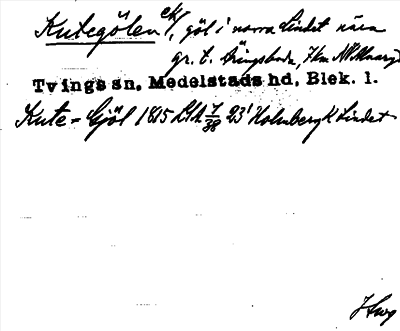 Kutegölen ek/, göl i norra Lindet nära
gr. t. Öljungsboda, 7 km
Tvings sn, Medelstads hd, Blek. l.
Kute-Gjöl 1815 LSA 7/38 23' Holmberg K Lindet